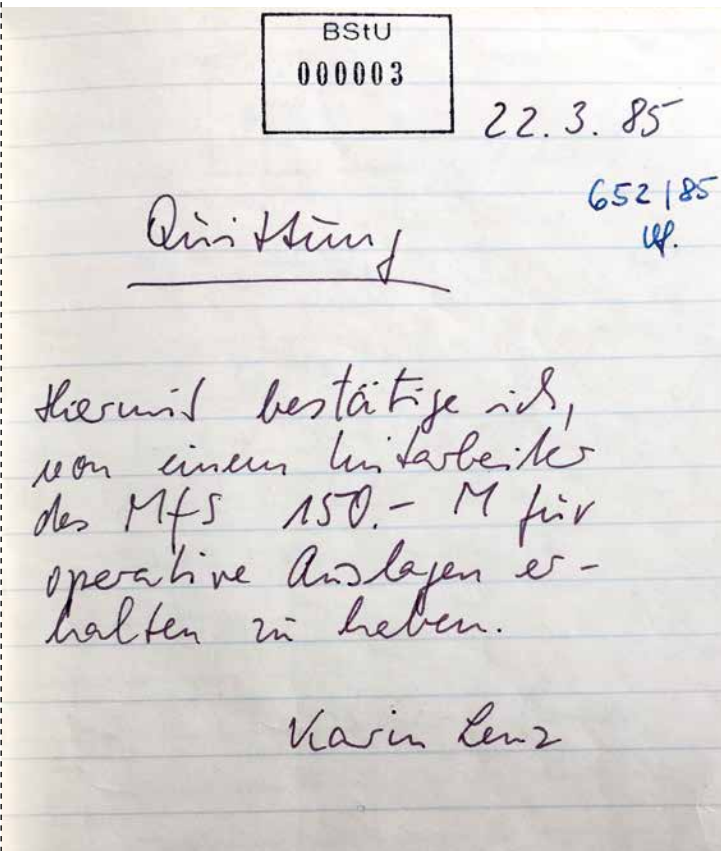 BStU
000003
22. 3. 85
652/85
Quittung
Hiermit bestätige ich,
von einem Mitarbeiter
des MfS 150.- M für
operative Auslagen er-
halten zu haben.
Karin Lenz